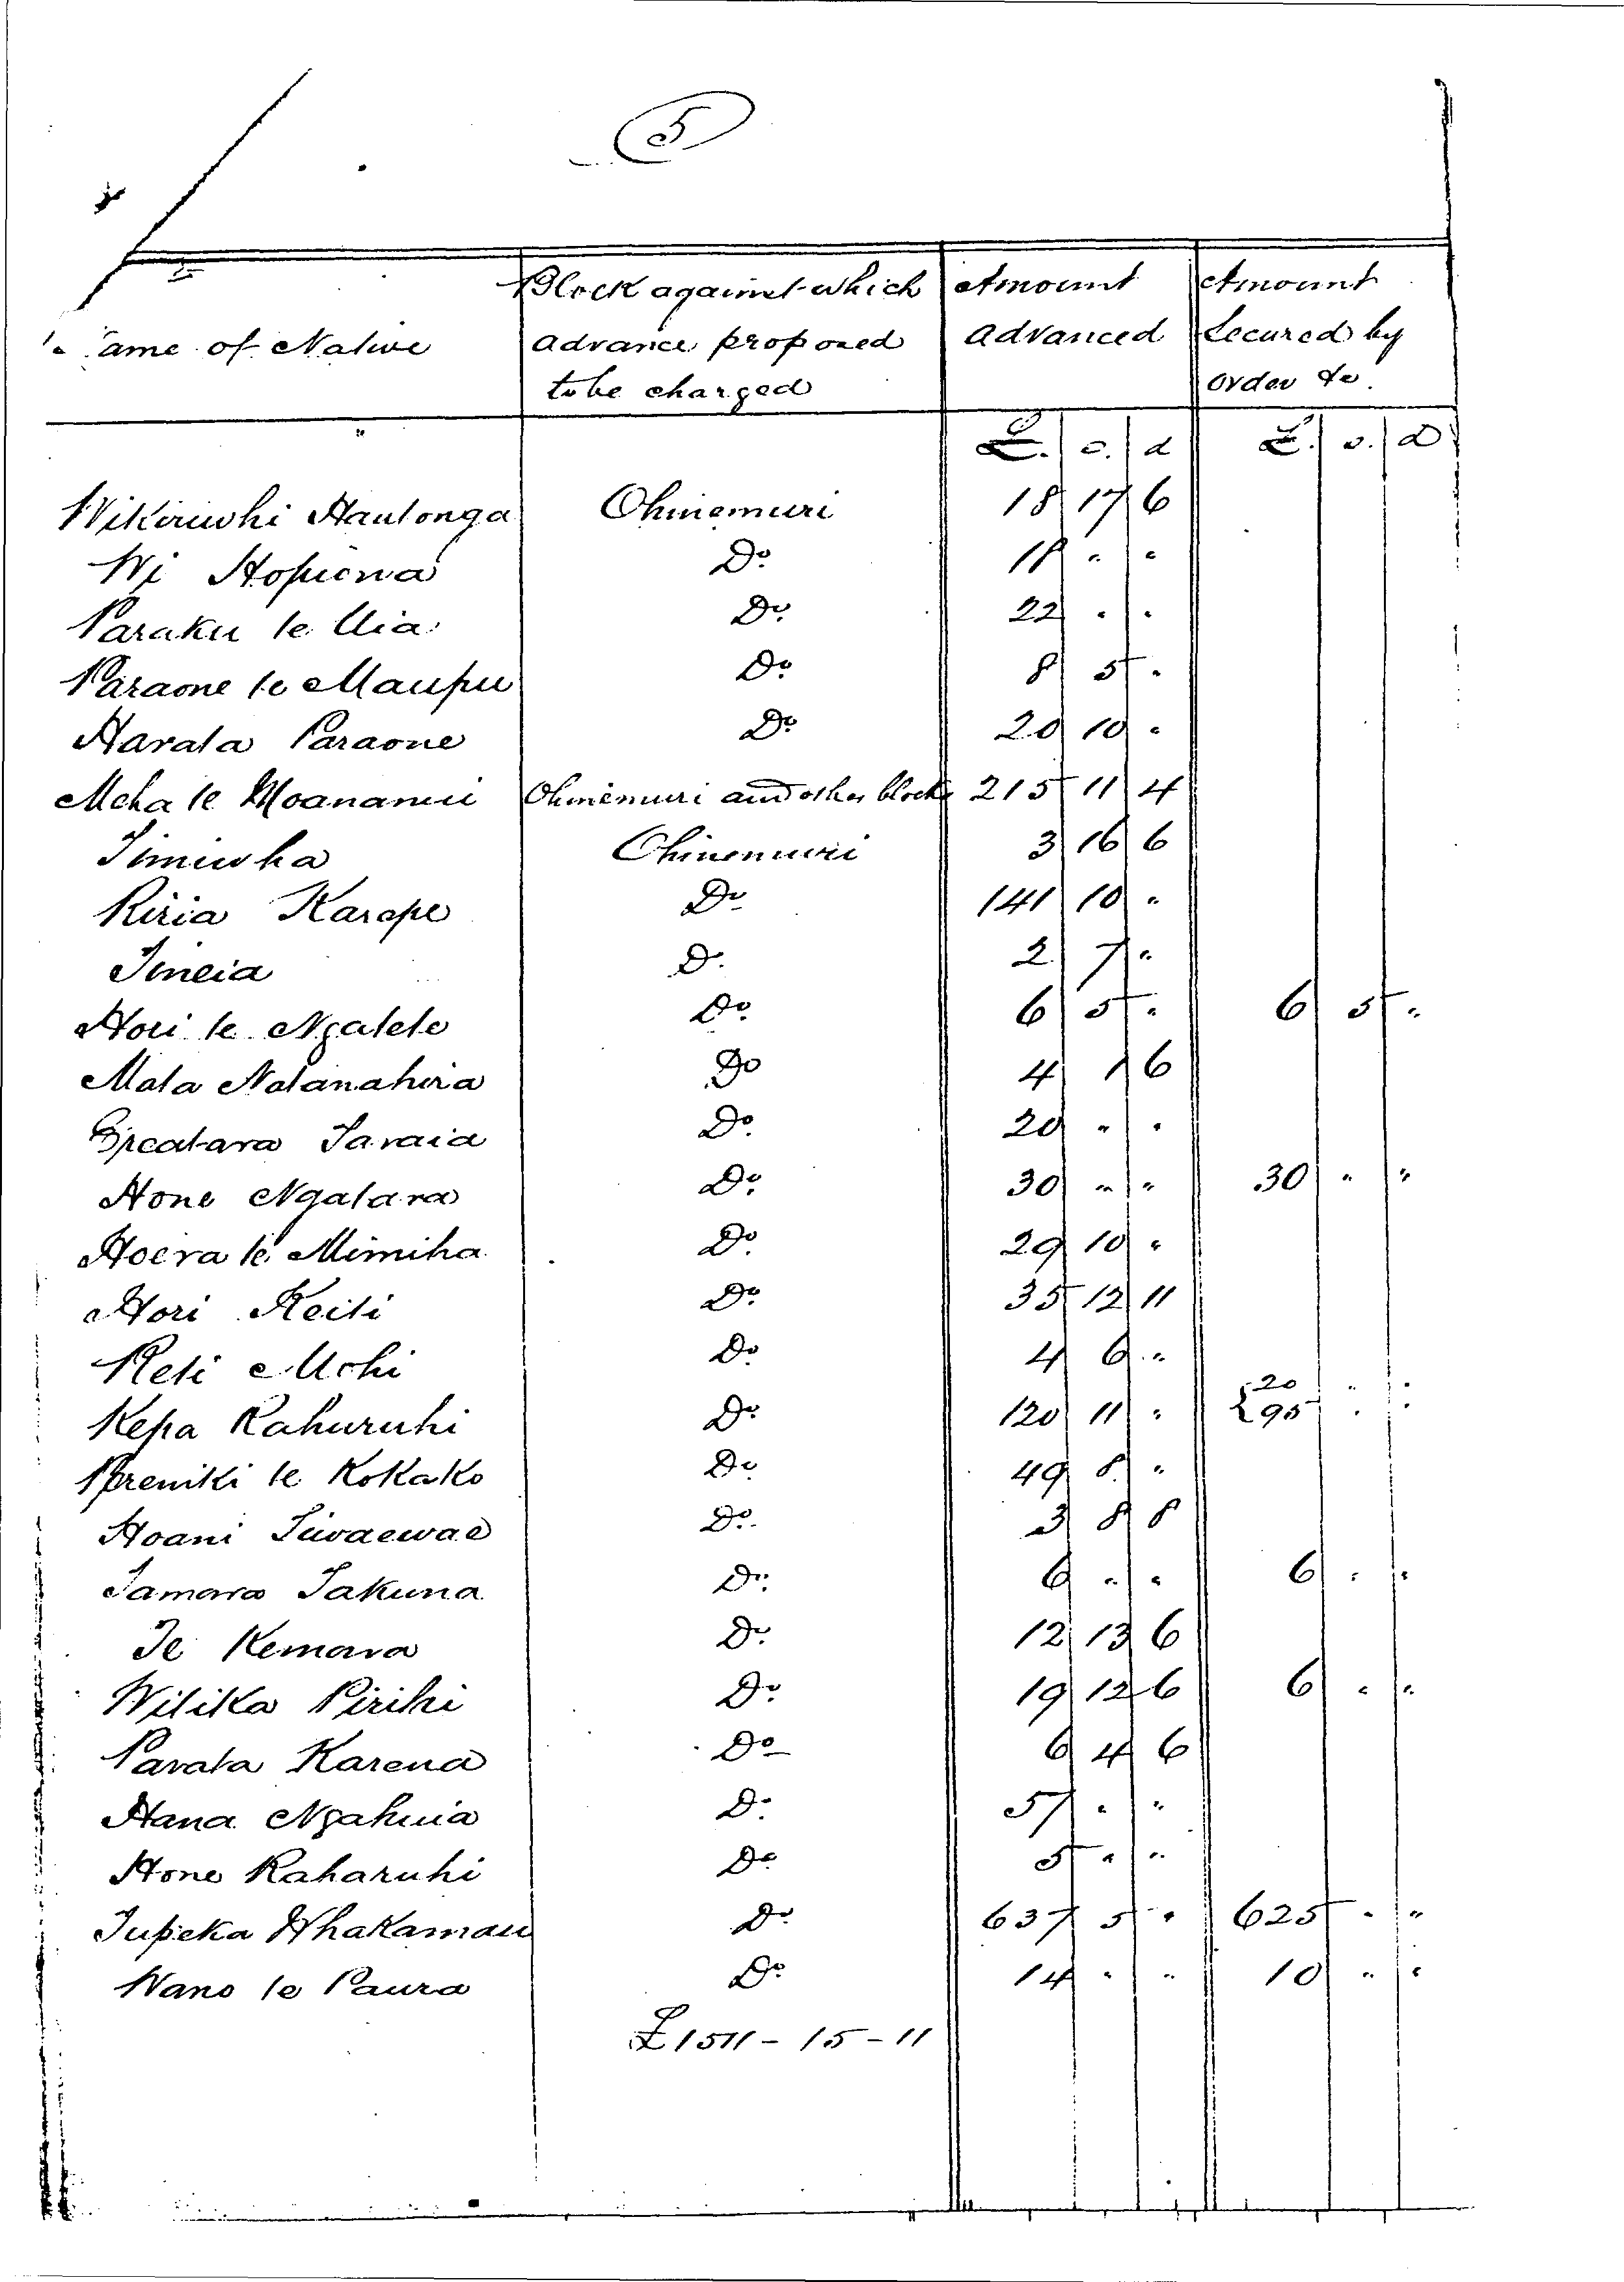 5
Name of Native | Block against which advance proposed to be charged | Amount Advanced | Amount Secured by Order &c.
£. s. d | £. s. D
Wikiriwhi Hautonga Ohinemuri 18 17 6
Wi Hopihana Do 18 " "
Paraku te Uia Do 22 " "
Paraone te Maupu Do 8 5 "
Harata Paraone Do 20 10 "
Meha te Moananui Ohinemuri and other blocks 215 11 4
Timiuha Ohinemuri 3 16 6
Riria Karepe Do 141 10 "
Tineia Do 2 7 "
Hori te Ngatete Do 6 5 " 6 5 "
Mata Natanahira Do 4 1 6
Taraia Do 20 " "
Hone Ngatara Do 30 " " 30 " "
Hoera te Mimiha Do 29 10 "
Hori Keiti Do 35 12 11
Reti Mohi Do 4 6 "
Kepa Rahuruhi Do 120 11 " { 20 " "
95 " "
Pereniki te Kokako Do 49 8 "
Hoani Tiwaewae Do 3 8 8
Tamara Takuna Do 6 " " 6 " "
Te Kemara Do 12 13 6
Witika Pirihi Do 19 12 6 6 " "
Parata Karena Do 6 4 6
Hana Ngahuia Do 57 " "
Hone Raharuhi Do 5 " "
Tupeka Whakamau Do 637 5 " 625 " "
Nano te Paura Do 14 " " 10 " "
£1511 - 15 - 11